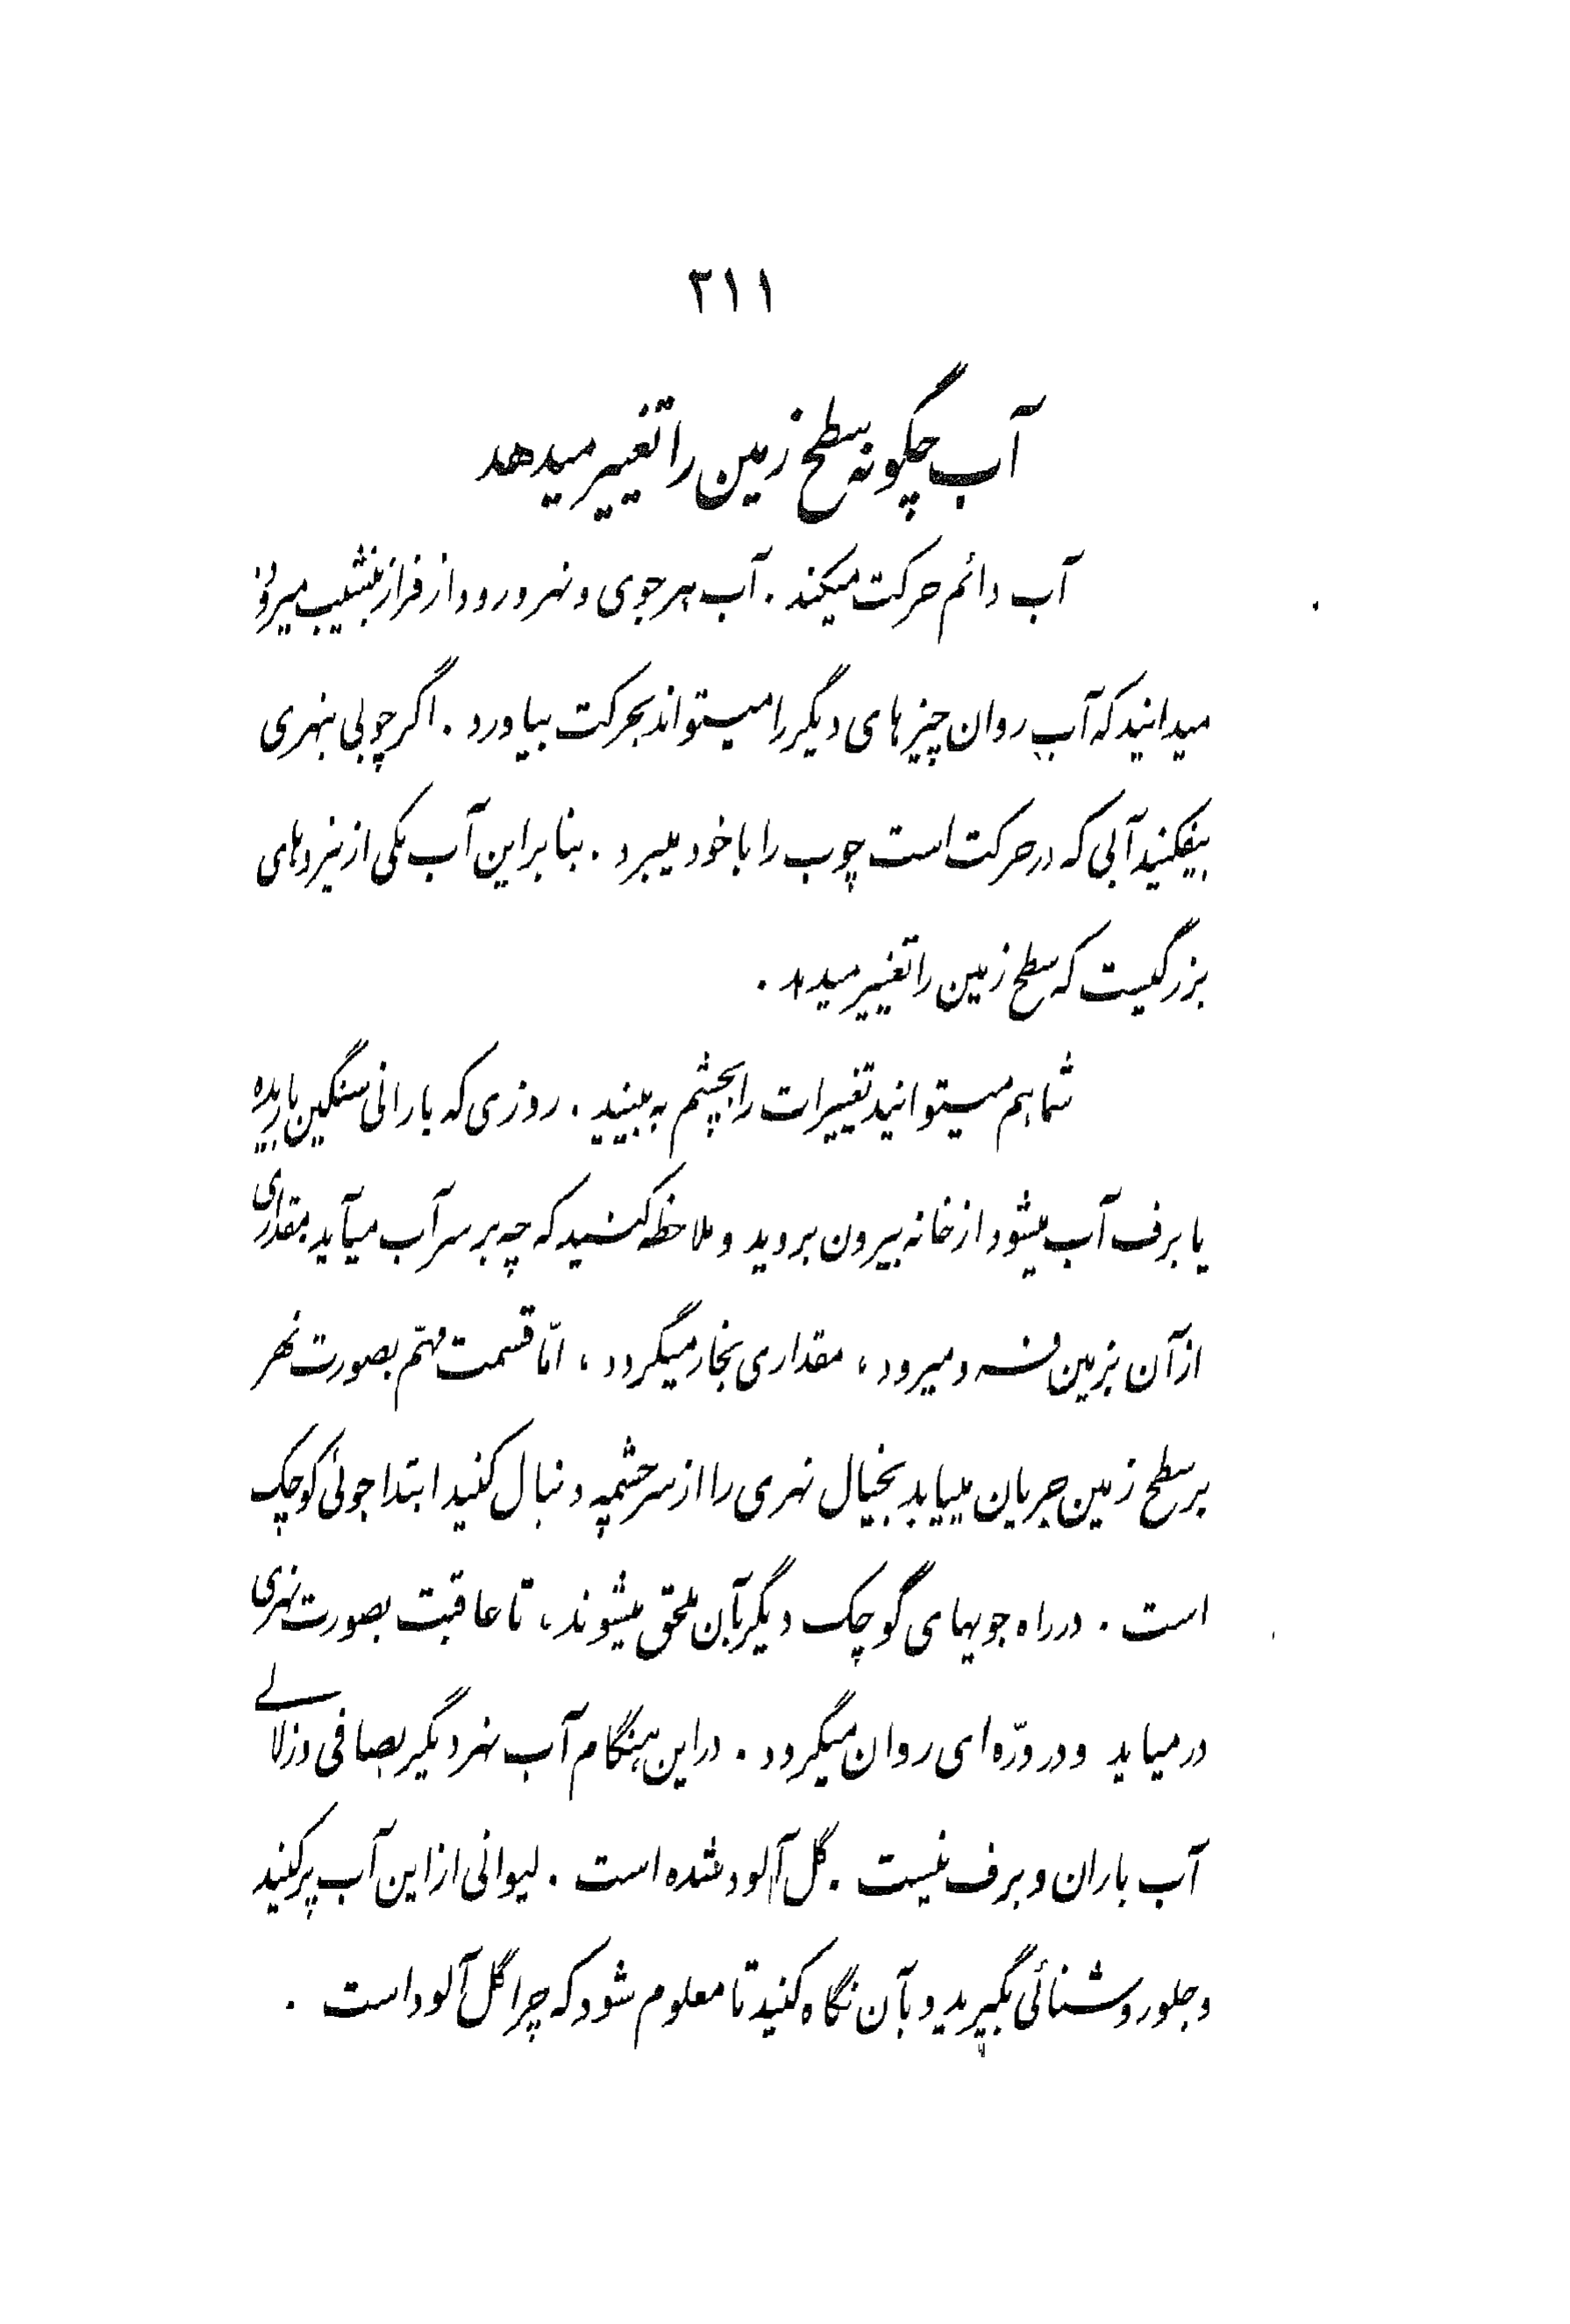 ۲۱۱
آب چگونه سطح زمین را تغییر میدهد
آب دائم حرکت میکند. آب هر جوی و نهر و رود از فراز بنشیب میرود
میدانید که آب روان چیزهای دیگر را میتواند بحرکت بیاورد. اگر چوبی بنهری
بیفکنید آبی که در حرکت است چوب را با خود میبرد. بنابراین آب یکی از نیروهای
بزرگیست که سطح زمین را تغییر میدهد.
شما هم میتوانید تغییرات را بچشم به بینید. روزی که بارانی سنگین باریده
یا برف آب میشود از خانه بیرون بروید و ملاحظه کنید که چه بر سر آب میآید مقداری
از آن بزمین فرو میرود، مقداری بخار میگردد، امّا قسمت مهّم بصورت نهر
بر سطح زمین جریان مییابد بخیال نهری را از سرچشمه دنبال کنید ابتدا جوئی کوچک
است. در راه جویهای کوچک دیگر بآن ملحق میشوند، تا عاقبت بصورت نهری
در میاید و در درّه ای روان میگردد. در این هنگام آب نهر دیگر بصافی و زلالی
آب باران و برف نیست. گل آلود شده است. لیوانی از این آب پر کنید
و جلو روشنائی بگیرید و بآن نگاه کنید تا معلوم شود که چرا گل آلود است.